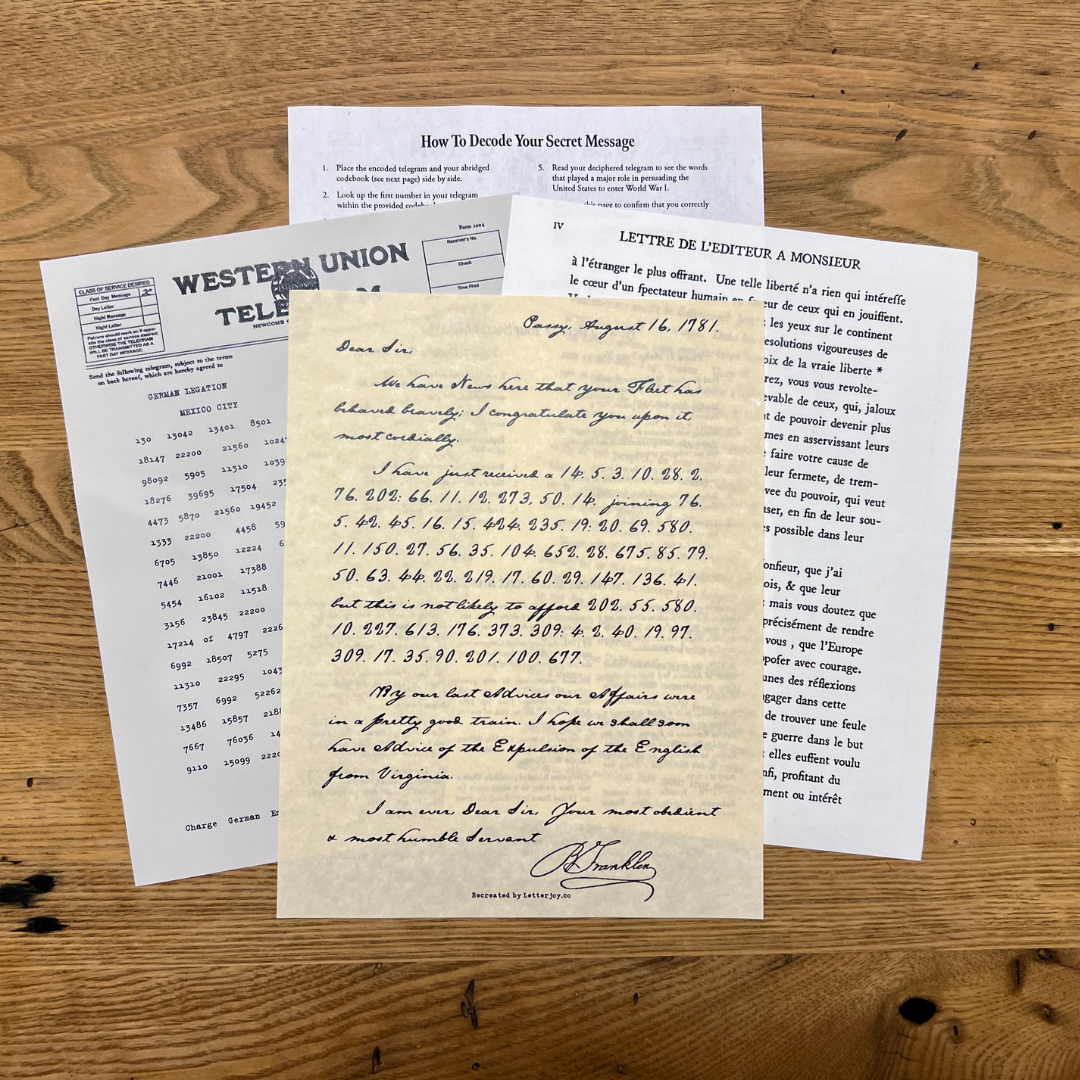 How To Decode Your Secret Message
1. Place the encoded telegram and your abridged
codebook (see next page) side by side.
2. Look up the first number in your telegram
within the provided
5. Read your deciphered telegram to see the words
that played a major role in persuading the
United States to enter World War I.
page to confirm that you correctly
Form 1204
WESTERN UNION
TELE
NEWCOMB
CLASS OF SERVICE DESIRED
Fast Day Message X
Day Letter
Night Message
Night Letter
Patrons should mark an X oppo-
site the class of service desired;
OTHERWISE THE TELEGRAM
WILL BE TRANSMITTED AS A
FAST DAY MESSAGE.
Receiver's No.
Check
Time Filed
Send the following telegram, subject to the terms
on back hereof, which are hereby agreed to
GERMAN LEGATION
MEXICO CITY
130 13042 13401 8501
18147 22200 21560 10247
98092 5905 11310 1039
18276 39695 17504 23
4473 5870 21560 19452
1333 22200 4458 59
6705 13850 12224 6
7446 21001 17388
5454 16102 11518
3156 23845 22200
17214 of 4797 222
6992 18507 5275
11310 22295 1043
7357 6992 52262
13486 15857 218
7667 76036 14
9110 15099 222
Charge German
IV
LETTRE DE L'EDITEUR A MONSIEUR
à l'étranger le plus offrant. Une telle liberté n'a rien qui intéreſſe
le cœur d'un ſpectateur humain en de ceux qui en jouiſſent.
les yeux sur le continent
esolutions vigoureuses de
oix de la vraie liberte *
rez, vous vous revolte-
evable de ceux, qui, jaloux
t de pouvoir devenir plus
mes en asservissant leurs
faire votre cause de
leur fermete, de trem-
vee du pouvoir, qui veut
user, en fin de leur sou-
s possible dans leur
onſieur, que j'ai
ois, & que leur
: mais vous doutez que
précisément de rendre
vous , que l'Europe
poſer avec courage.
unes des réflexions
gager dans cette
de trouver une ſeule
e guerre dans le but
: elles euſſent voulu
nfi, profitant du
ment ou intérêt
Passy, August 16, 1781.
Dear Sir,
We have News here that your Fleet has
behaved bravely; I congratulate you upon it,
most cordially.
I have just received a 14. 5. 3. 10. 28. 2.
76. 202: 66. 11. 12. 273, 50. 14. joining 76.
5. 42. 45. 16. 15. 424. 235. 19: 20. 69. 580.
11. 150. 27. 56. 35. 104. 652. 28. 675. 85. 79.
50. 63. 44. 22. 219. 17. 60. 29. 147. 136. 41.
but this is not likely to afford 202. 55. 580.
10. 227. 613. 176. 373. 309. 4. 2. 40. 19. 97.
309. 17. 35. 90. 201. 100. 677.
By our last Advices our Affairs were
in a pretty good train. I hope we shall soon
have Advice of the Expulsion of the English
from Virginia.
I am ever, Dear Sir, Your most obedient
& most humble Servant
B Franklin
Recreated by Letterjoy.co